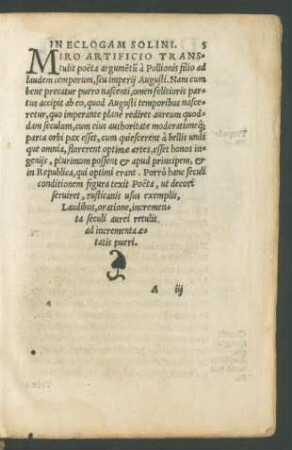 IN ECLOGAM SOLINI. 5
MIRO ARTIFICIO TRANS-
tulit poëta argumẽtũ à Pollionis filio ad
laudem temporum, seu imperij Augusti. Nam cum
bene precatur puero nascenti, omen felicioris par-
tus accipit ab eo, quod Augusti temporibus nasce-
retur, quo imperante planè rediret aureum quod-
dam seculum, cum eius authoritate moderationeq;
parta orbi pax esset, cum quiescerent à bellis undi
que omnia, florerent optimæ artes, esset honos in-
genijs, plurimum possent & apud principem, &
in Republica, qui optimi erant. Porrò hanc seculi
conditionem figura texit Poëta, ut decori
seruiret, rusticanis usus exemplis,
Laudibus, oratione, incremen-
ta seculi aurei retulit
ad incrementa æ-
tatis pueri.
A iij